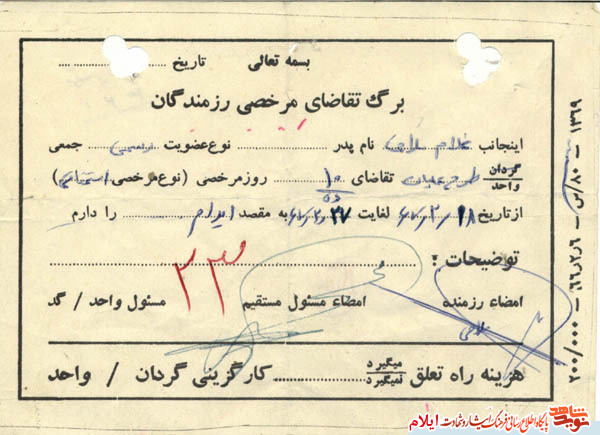 بسمه تعالی
تاریخ
برگ تقاضای مرخصی رزمندگان
اینجانب غلام ملاحی نام پدر نوع عضویت جمعی
گردان / واحد طرح عملیات تقاضای ۱۰ روز مرخصی (نوع مرخصی استحقاقی)
از تاریخ ۶۷/۲/۱۸ لغایت ۶۷/۲/۲۷ به مقصد ایلام را دارم
توضیحات :
۲۳
امضاء رزمنده امضاء مسئول مستقیم مسئول واحد / گد
هزینه راه تعلق میگیرد / نمیگیرد کارگزینی گردان / واحد
۲۰۰/۰۰۰ – ۶۶٫۲٫۶ – س/۸۰ – ۱۳۶۹
نوید شاهد
پایگاه اطلاع رسانی فرهنگ ایثار و شهادت ایلام